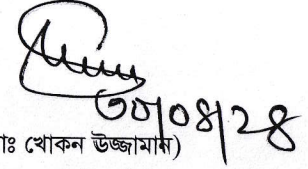 ৩০/০৪/২৪
াঃ খোকন উজ্জামান)